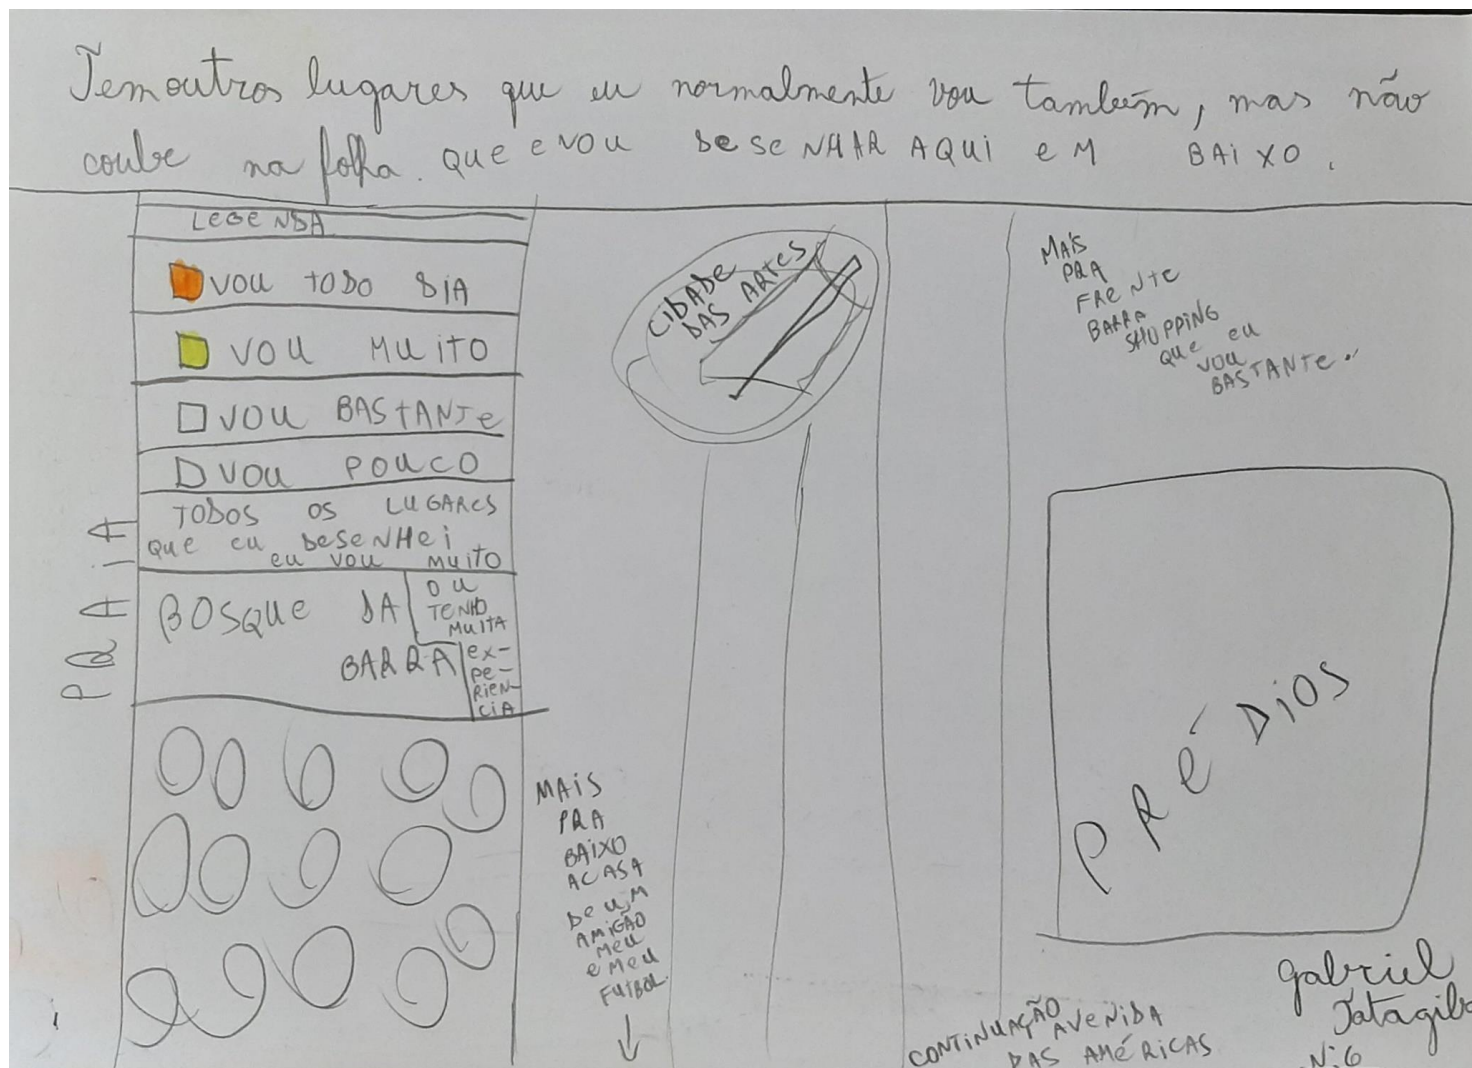 Tem outros lugares que eu normalmente vou também, mas não
coube na folha. QUE EVOU DESENHAR AQUI EM BAIXO.
LEGENDA
VOU TODO DIA
VOU MUITO
VOU BASTANTE
VOU POUCO
TODOS OS LUGARES
QUE EU DESENHEI
EU VOU MUITO
OU
TENHO
MUITA
EX-
PE-
RIEN-
CIA
BOSQUE DA
BARRA
PRAIA
CIDADE
DAS ARTES
MAIS
PRA
FRENTE
BARRA
SHOPPING
QUE EU
VOU
BASTANTE.
MAIS
PRA
BAIXO
A CASA
DE UM
AMIGÃO
MEU
E MEU
FUTBOL
PRÉDIOS
CONTINUAÇÃO AVENIDA
DAS AMÉRICAS
Gabriel
Tatagiba
N:6